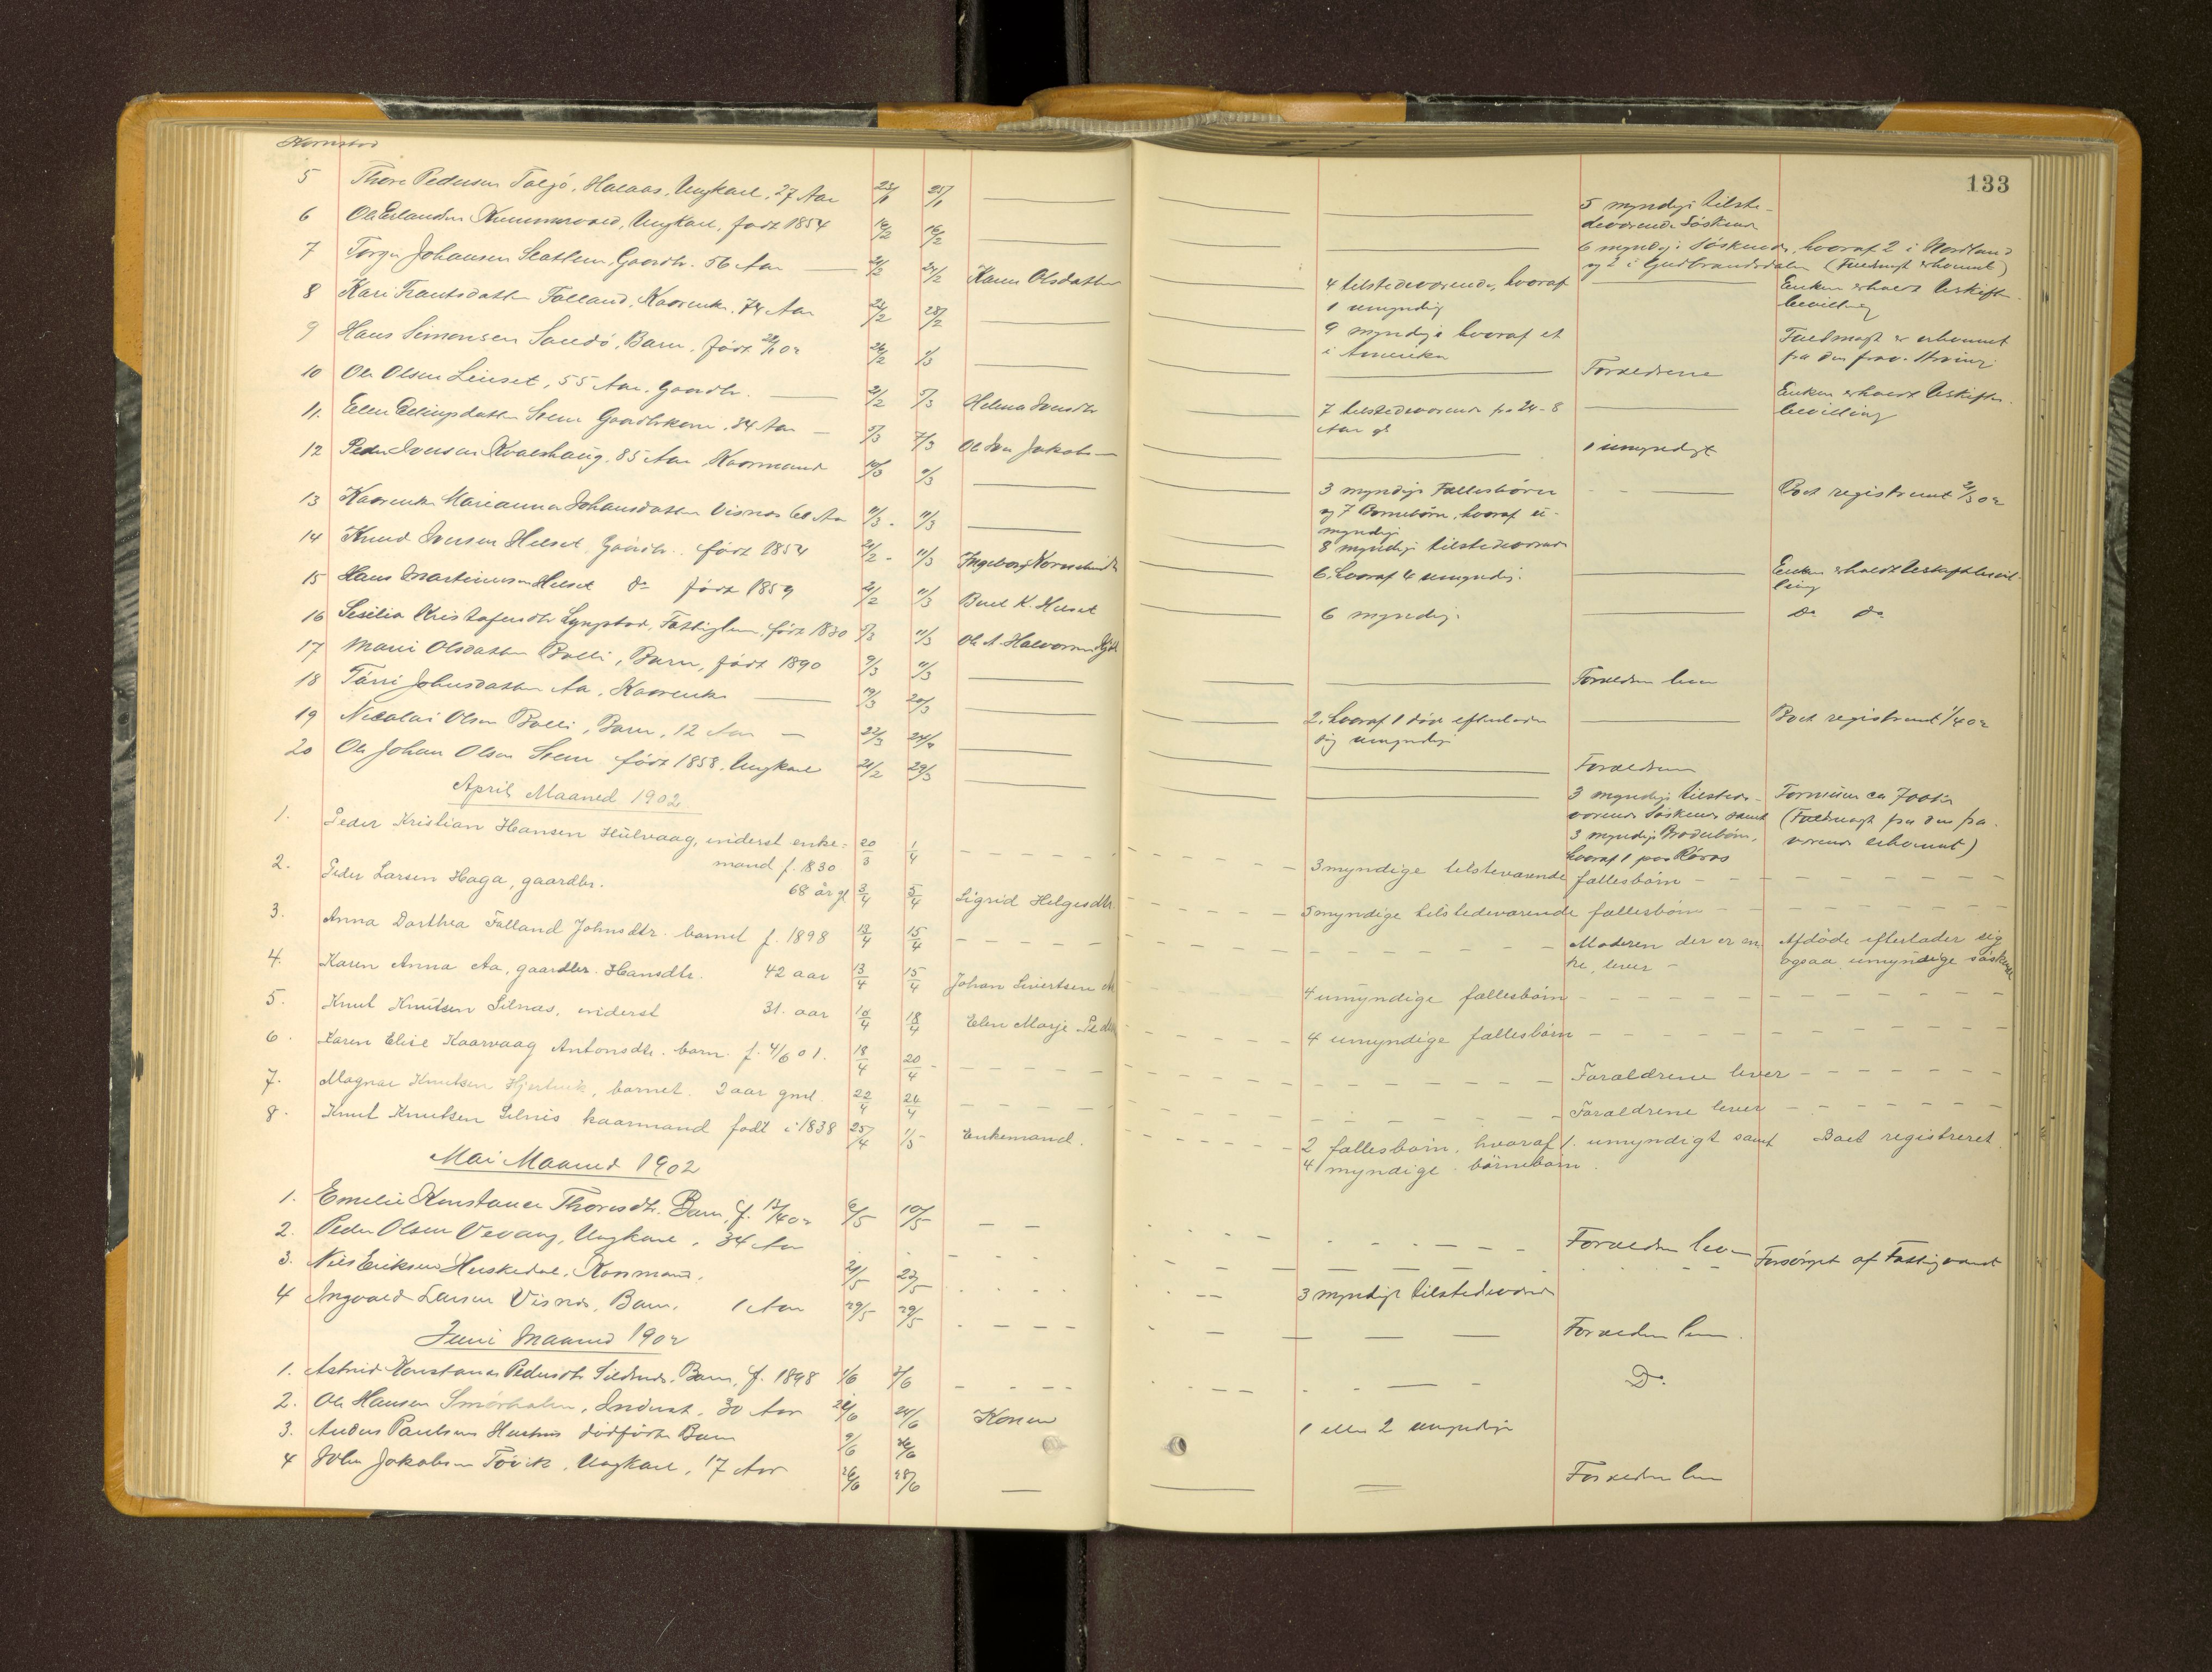 Kornstad
133
5 Thore Pedersen Talgö, Halaas, Ungkarl, 27 Aar 23/1 25/1
5 myndige tilste-
deværende Söskende
6 Ole Erlandsen Ungkarl, født 1854 14/2 16/2
6 myndige Söskende, hvoraf 2 i Nordland
og 2 i Gudbrandsdalen (Fuldmagt erhvervet)
7 Torger Johansen Gaardbr. 56 Aar 21/2 24/2 Karen Olsdatter
4 tilstedeværende, hvoraf
1 umyndig
Enken erholdt Uskifte-
bevilling
8 Kari Frantsdatter Folland, Kaarenke, 74 Aar 28/2
9 myndige hvoraf et
i Amerika
Fuldmagt er erhvervet
fra den
9 Hans Simonsen Sandö, Barn, født 02 26/2 1/3
Forældrene
10 Ole Olsen Linset, 55 Aar, Gaardbr. 21/2 5/3 Helena Iversdtr
7 tilstedeværende fra 24-8
Aar gl
Enken erholdt Uskifte-
bevilling
11. Ellen Ellingsdatter Stene Gaardbrkone, 34 Aar 5/3 7/3 Ole Iver Jakobsen
1 umyndigt
12 Peder Iversen Kvalshaug, 85 Aar, Kaarmand 10/3
3 myndige Fællesbörn
og 7 Barnebörn, hvoraf
myndige
Boet registreret 2/3 02
13 Kaarenke Marianna Johansdatter Visnes 60 Aar 11/3 11/3
8 myndige tilstedeværende
14 Knud Iversen Helset, Gaardbr. født 1854 21/2 11/3 Ingeborg
6 hvoraf 4 umyndig.
Enken erholdt Uskiftebevil-
ling
15 Hans Martinusen Helset Do født 1859 21/2 11/3 Beret K. Helset
6 myndige
Do Do
16 Sesilia Kristofersdtr Lyngstad, Fattiglem, født 1830 5/3 11/3 Ole A. Halvorsen
17 Marie Olsdatter Bolli, Barn, født 1890 9/3 11/3
Forældrene lever
18 Johnsdatter Aa, Kaarenke 19/3 20/3
2, hvoraf 1 död efterlader
sig umyndige
Boet registreret 1/4 02
19 Nicolai Olsen Bolli, Barn, 12 Aar 22/3
Forældrene
20 Ole Johan Olsen Stene født 1858, Ungkarl 21/2 29/3
3 myndige tilstede-
værende Söskende samt
3 myndige Broderbörn,
hvoraf 1 paa Röros
Formuen ca 700 kr
(Fuldmagt fra den fra-
værende erhvervet)
April Maaned 1902
1. Peder Kristian Hansen Hulvaag, inderst enke- 20/3 1/4
mand f. 1830
3 myndige tilsteværende fællesbörn
2. Peder Larsen Haga, gaardbr. 68 år gl 3/4 5/4 Sigrid Helgesdtr.
5 myndige tilstedeværende fællesbörn
3. Anna Dorthea Folland Johnsdtr. barnet f. 1898 13/4 15/4
Moderen der er en
ke, lever
Afdöde efterlader sig
ogsaa umyndige söskende
4. Karen Anna Aa, gaardbr. Hansdtr. 42 aar 13/4 15/4 Johan Sivertsen Aa
4 umyndige fællesbörn
5. Knut Knutsen Silnæs, inderst 31. aar 10/4 18/4 Elen Marje Pedersdtr
4 umyndige fællesbörn
6. Karen Elise Kaarvaag Antonsdtr. barn f. 4/6 01. 18/4 20/4
Forældrene lever
7. Magnar Knutsen Hjertvik, barnet. 2 aar gml. 22/4 26/4
Forældrene lever
8. Knut Knutsen Silnis kaarmand født i 1838 25/4 1/5 Enkemand.
2 fællesbörn, hvoraf 1. umyndigt samt
4 myndige börnebörn.
Boet registreret.
Mai Maaned 1902
1. Emelie Konstanse Thoresdtr. Barn, f. 12/4 02 6/5 10/5
Forældrene lever
2. Peder Olsen Vevang, Ungkarl, 34 Aar
Forsörget af Fattigvæsenet
3. Nils Eriksen Heskedal, Kaarmand, 21/5 23/5
3 myndige tilstedeværende
4 Ingvald Larsen Visnes, Barn, 1 Aar 29/5 29/5
Forældrene lever.
Juni Maaned 1902
1. Astrid Konstanse Pedersdtr Sildnes, Barn, f. 1898 1/6 3/6
Do
2. Ole Hansen Smörholm, Inderst, 30 Aar 24/6 Konen
1 eller 2 umyndige
3. Anders Paulsens dödfödte Barn 9/6
4 John Jakobsen Tövik, Ungkarl, 17 Aar 26/6 28/6
Forældrene lever